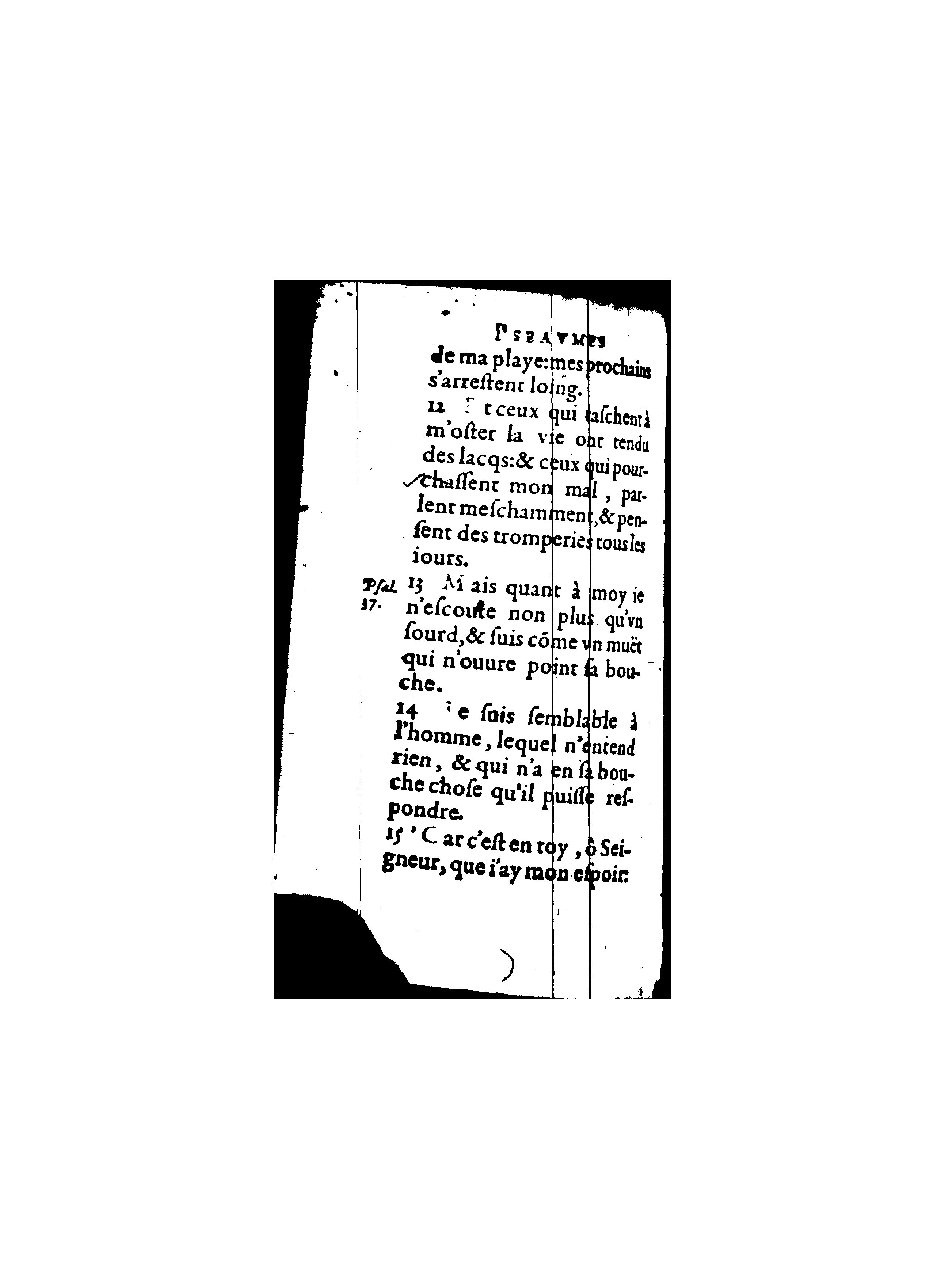 PSEAVMES
de ma playe:mes prochains
s'arreſtent loing.
12 Et ceux qui taſchent à
m'oſter la vie ont tendu
des lacqs:& ceux qui pour-
chaſſent mon mal, par-
lent meſchamment,& pen-
ſent des tromperies tous les
iours.
Pſal. 37.
13 Mais quant à moy ie
n'eſcoute non plus qu'vn
ſourd,& ſuis cōme vn muët
qui n'ouure point ſa bou-
che.
14 Ie ſuis ſemblable à
l'homme, lequel n'entend
rien, & qui n'a en ſa bou-
che choſe qu'il puiſſe reſ-
pondre.
15 Car c'eſt en toy, ô Sei-
gneur, que i'ay mon eſpoir: